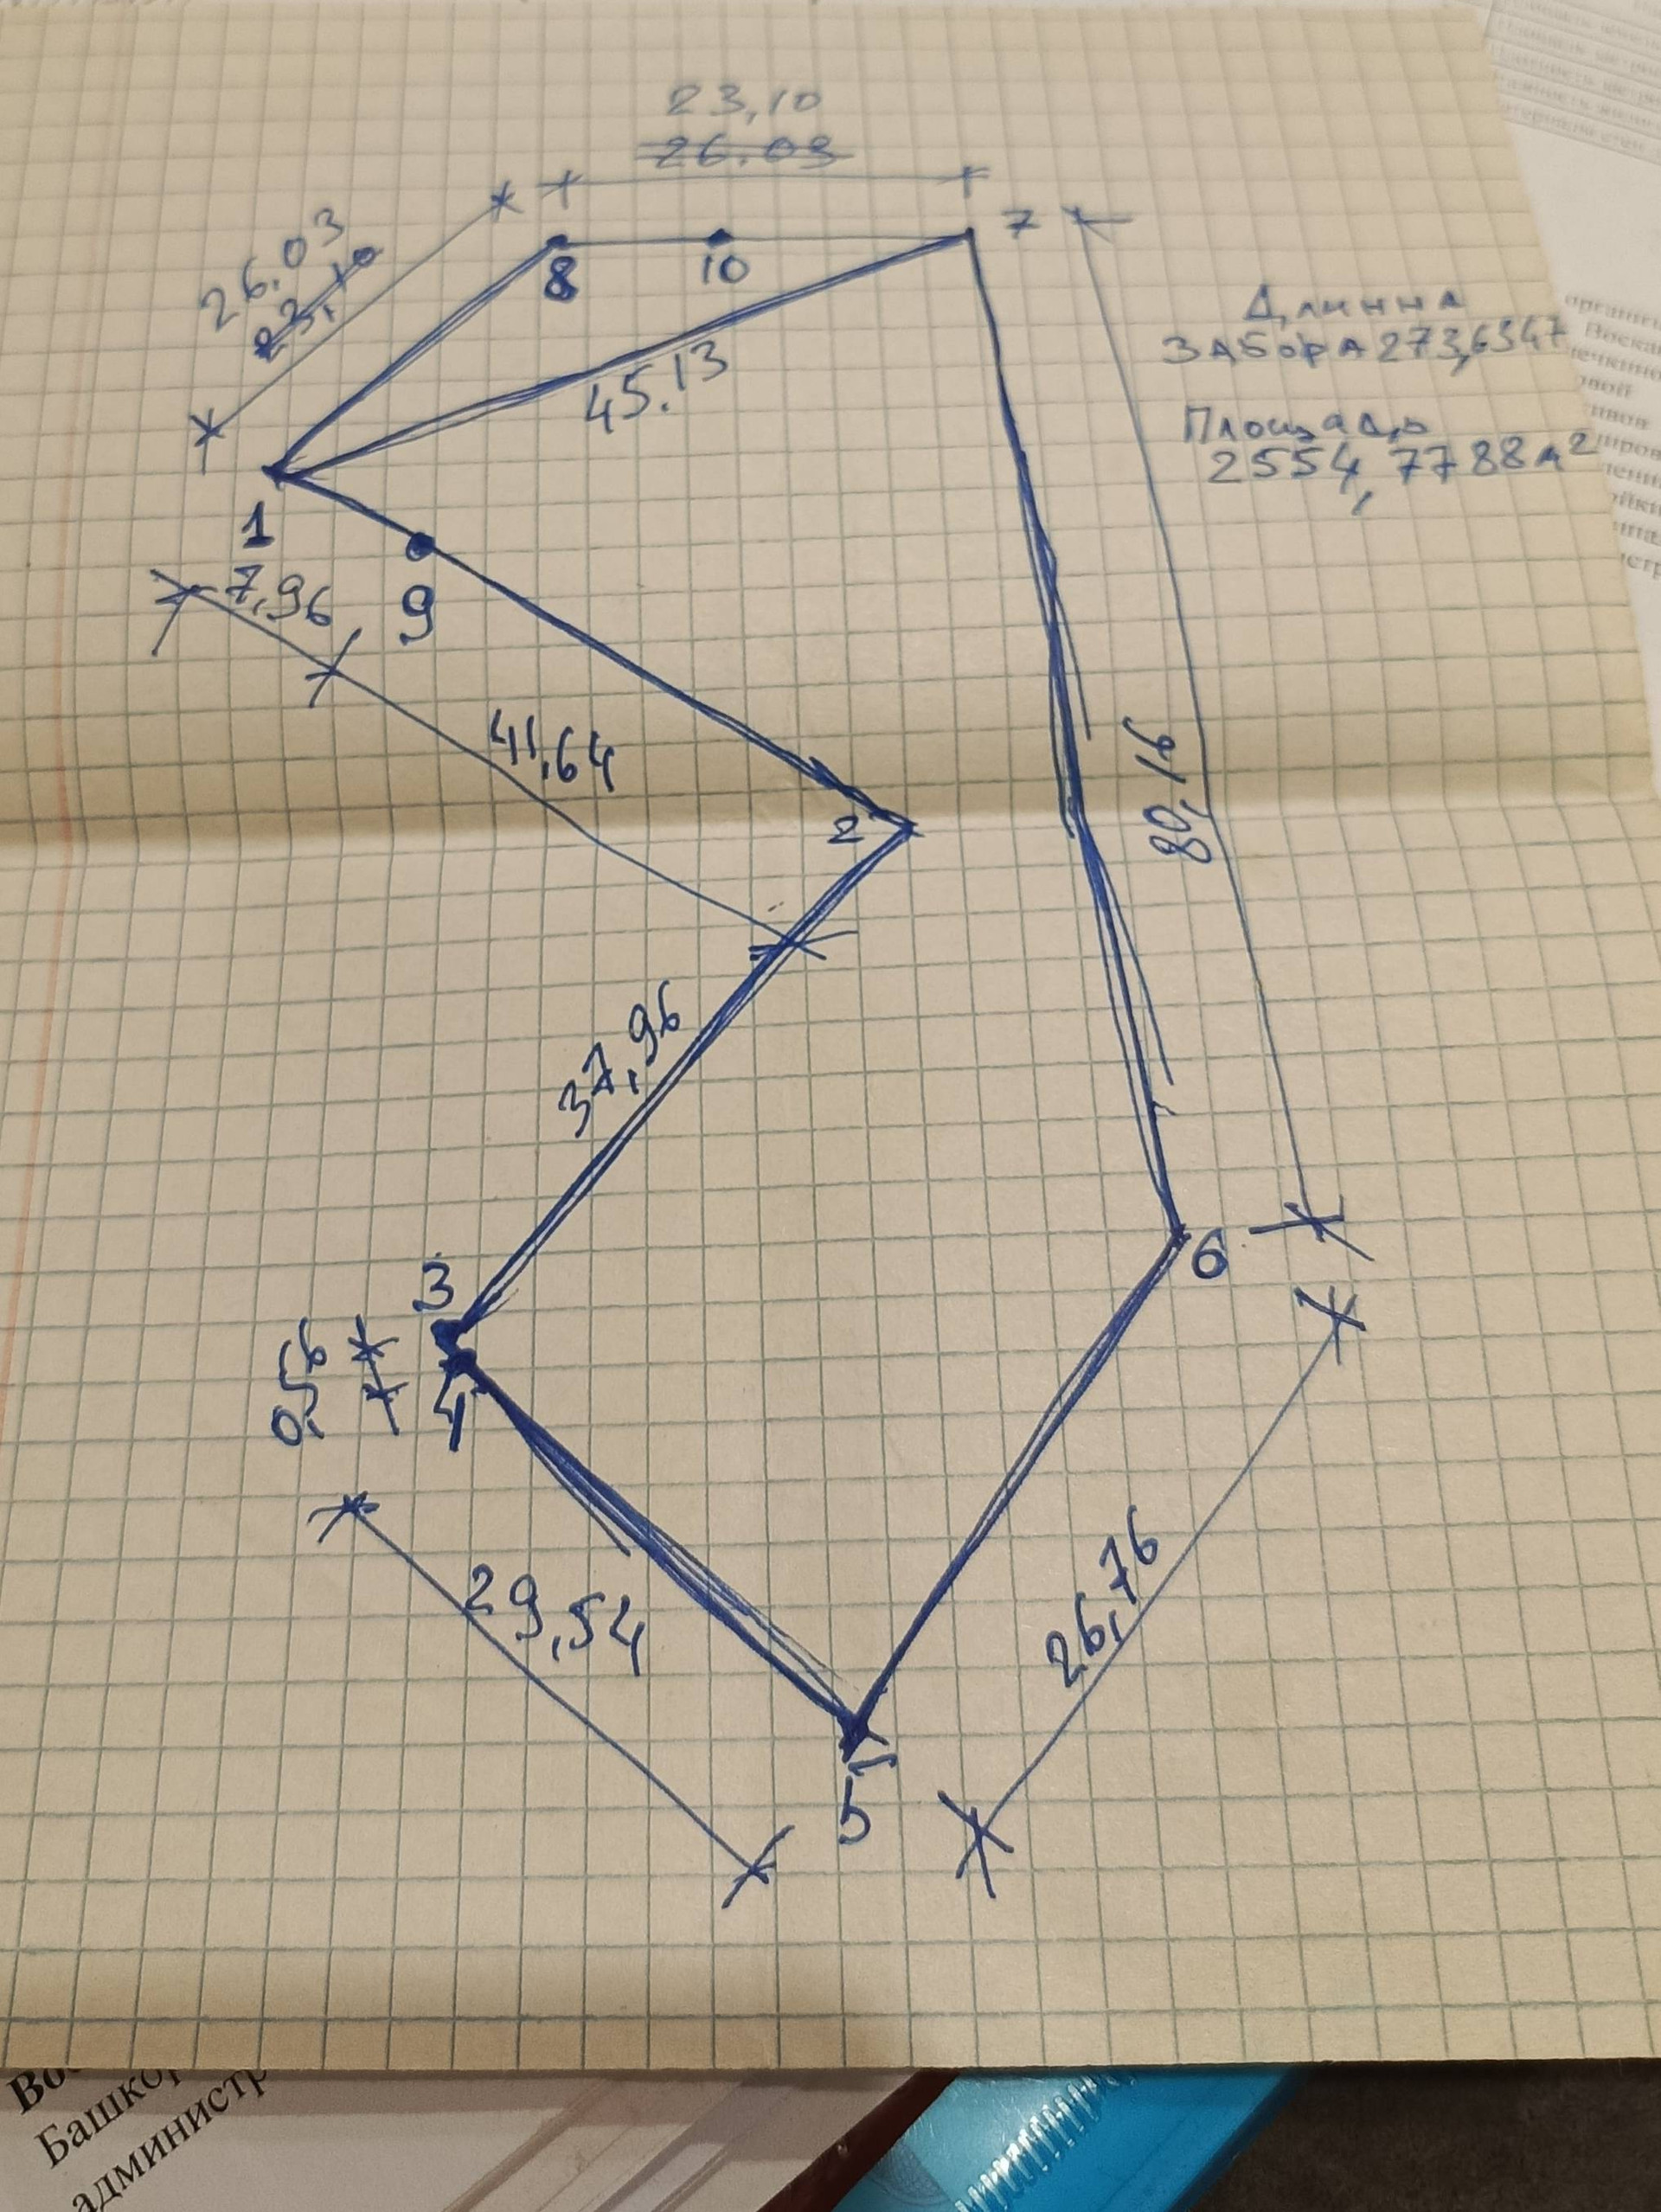 23,10
26.03
26.03
23,10
8
10
7
45.13
Длинна
ЗАБОРА 273,6347
Площадь
2554,7788 м2
1
7,96
9
41,64
2
80,16
37,96
3
0,56
4
6
29,54
26,76
5
Башкор
администр